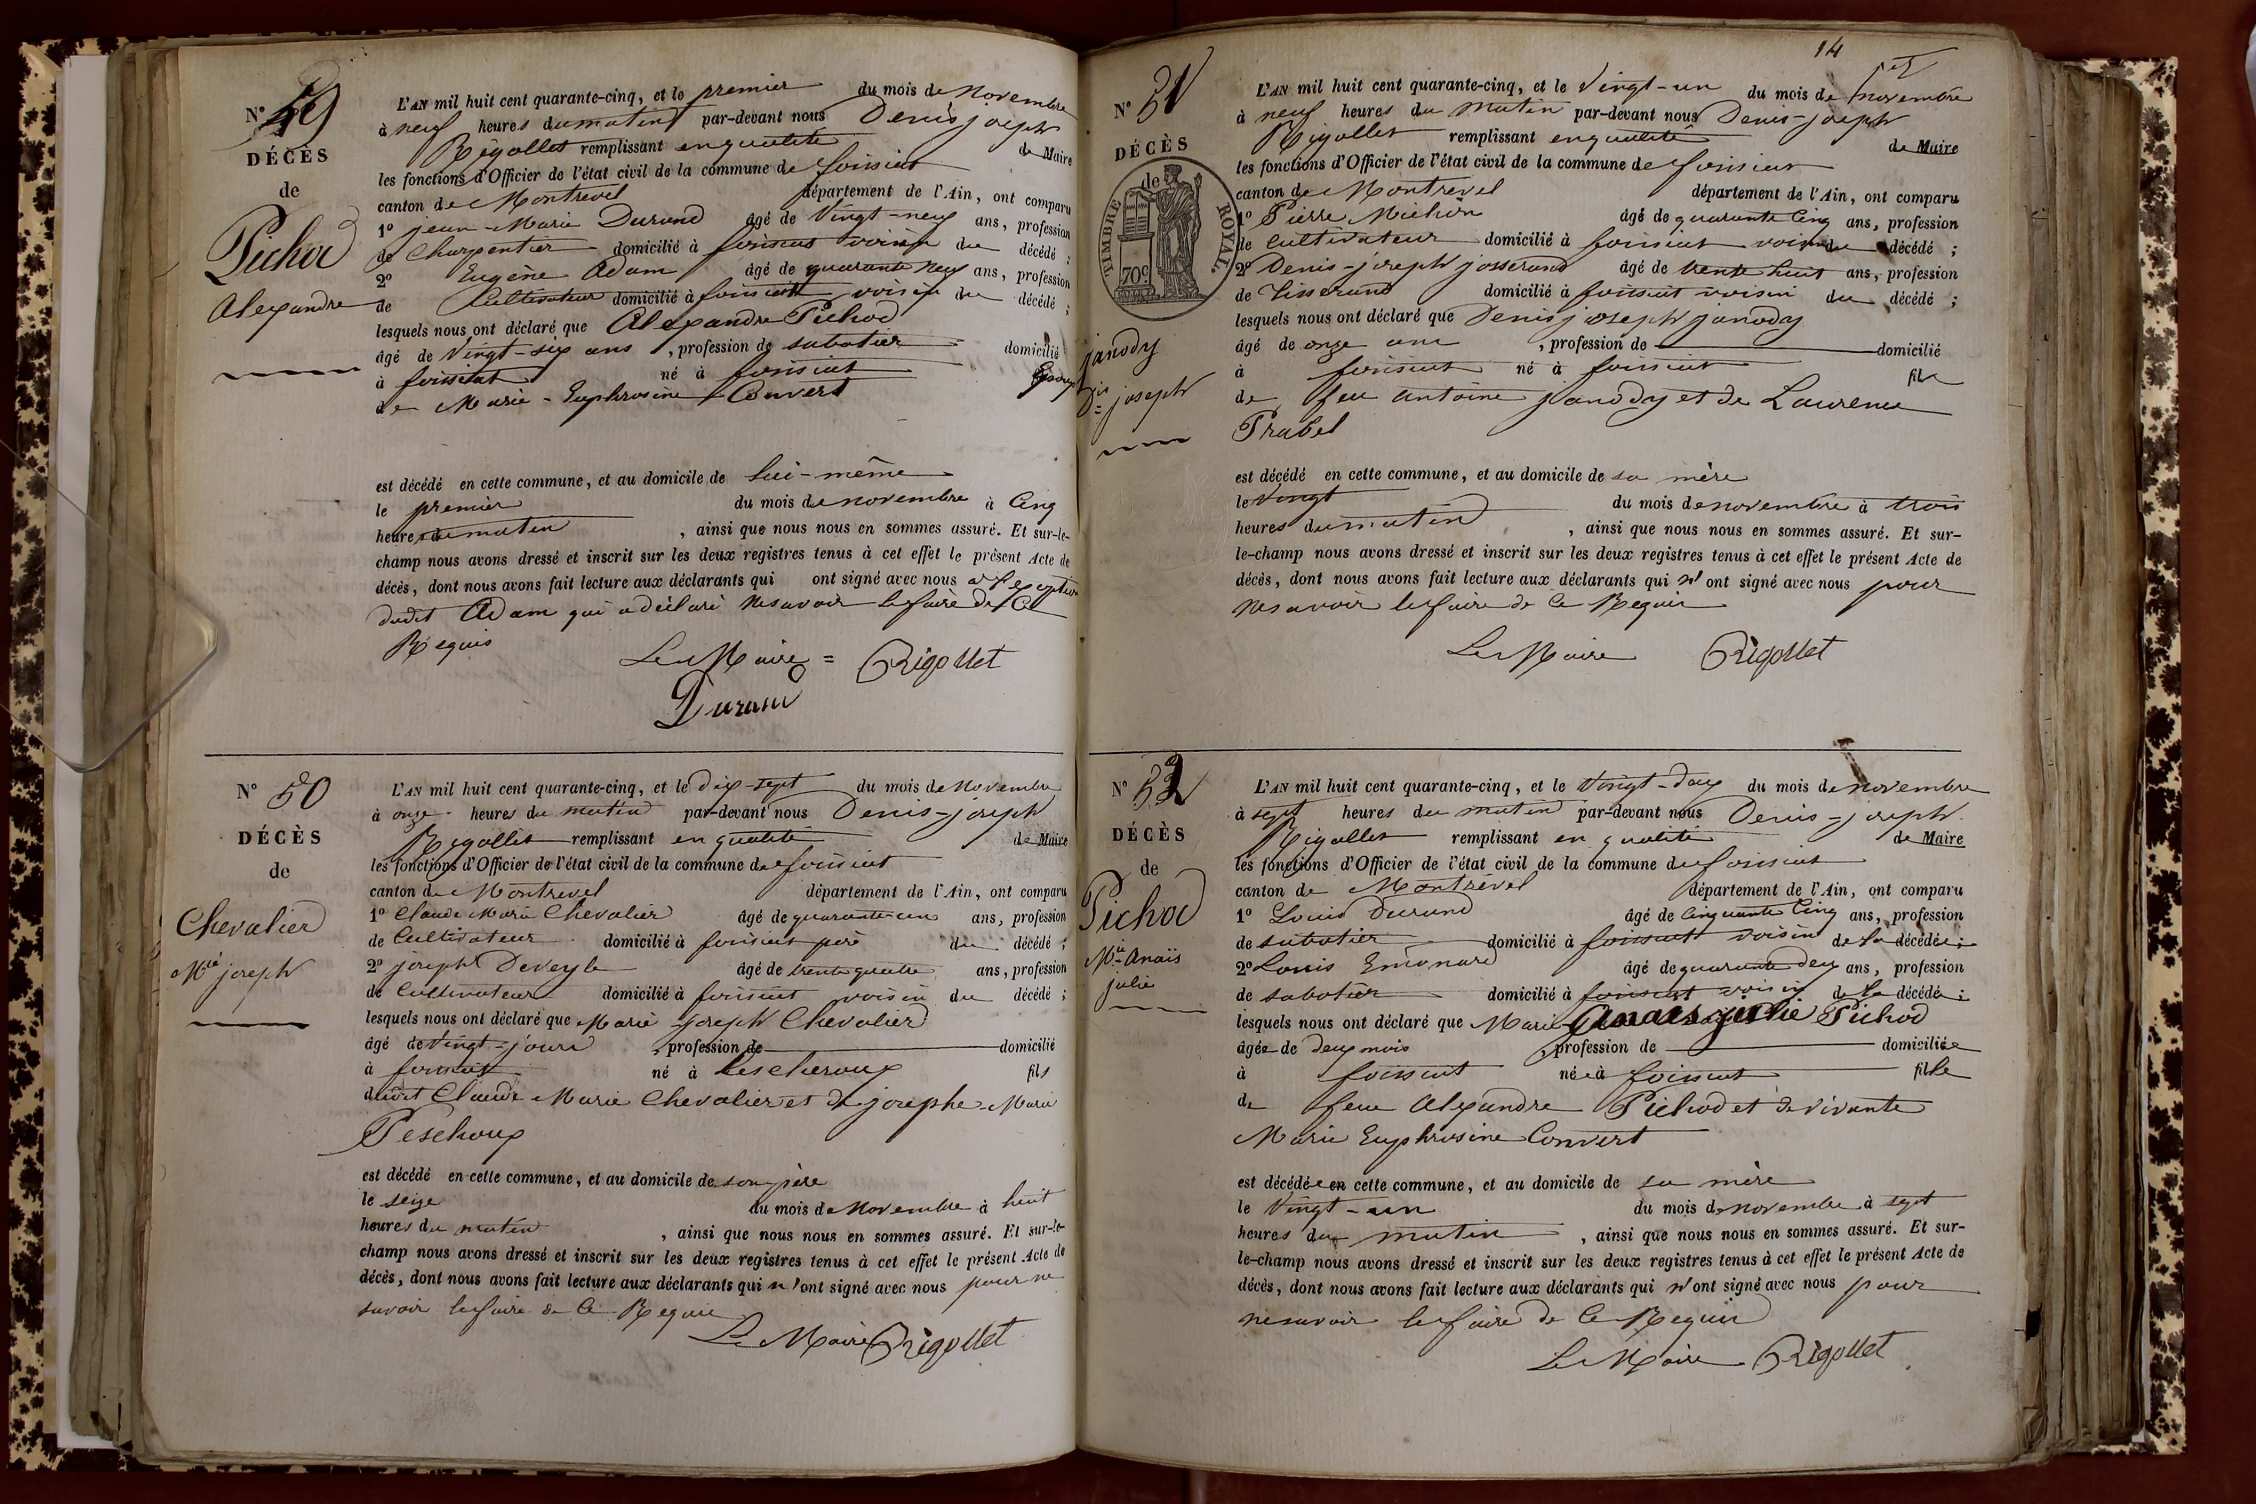 N° 49
DÉCÈS
de
Pichod
Alexandre
L'AN mil huit cent quarante-cinq, et le premier du mois de Novembre
à neuf heures du matin par-devant nous Denis joseph
Rigollet remplissant en qualité de Maire
les fonctions d'Officier de l'état civil de la commune de foissiat
canton de Montrevel département de l'Ain, ont comparu
1° jean-Marie Durand âgé de Vingt-neuf ans, profession
de Charpentier domicilié à foissiat voisin du décédé ;
2° Eugène Adam âgé de quarante neuf ans, profession
de Cultivateur domicilié à foissiat voisin du décédé ;
lesquels nous ont déclaré que Alexandre Pichod
âgé de Vingt-six ans , profession de sabotier domicilié
à foissiat né à foissiat Epoux
de Marie-Euphrosine Convert
est décédé en cette commune, et au domicile de lui-même
le premier du mois de novembre à Cinq
heures du matin , ainsi que nous nous en sommes assuré. Et sur-le-
champ nous avons dressé et inscrit sur les deux registres tenus à cet effet le présent Acte de
décès, dont nous avons fait lecture aux déclarants qui ont signé avec nous a l'exception
dudit Adam qui a déclaré ne savoir le faire de Ce
Requis
Le Maire = Rigollet
Durand
N° 50
DÉCÈS
de
Chevalier
Mie joseph
L'AN mil huit cent quarante-cinq, et le dix-sept du mois de Novembre
à onze heures du matin par-devant nous Denis-joseph
Rigollet remplissant en qualité de Maire
les fonctions d'Officier de l'état civil de la commune de foissiat
canton de Montrevel département de l'Ain, ont comparu
1° Claude Marie Chevalier âgé de quarante-un ans, profession
de Cultivateur domicilié à foissiat père du décédé ;
2° joseph Deveyle âgé de trente quatre ans, profession
de Cultivateur domicilié à foissiat voisin du décédé ;
lesquels nous ont déclaré que Marie joseph Chevalier
âgé de Vingt-jours , profession de domicilié
à foissiat né à Lescheroux fils
dudit Claude-Marie Chevalier et de josephe-Marie
Peschoux
est décédé en cette commune, et au domicile de son père
le seize du mois de Novembre à huit
heures du matin , ainsi que nous nous en sommes assuré. Et sur-le-
champ nous avons dressé et inscrit sur les deux registres tenus à cet effet le présent Acte de
décès, dont nous avons fait lecture aux déclarants qui n'ont signé avec nous pour ne
savoir le faire de Ce Requis
Le Maire Rigollet
14
N° 51
DÉCÈS
de
TIMBRE ROYAL
70c.
janody
Dis joseph
L'AN mil huit cent quarante-cinq, et le Vingt-un du mois de novembre
à neuf heures du matin par-devant nous Denis-joseph
Rigollet remplissant en qualité de Maire
les fonctions d'Officier de l'état civil de la commune de foissiat
canton de Montrevel département de l'Ain, ont comparu
1° Pierre Michon âgé de quarante Cinq ans, profession
de Cultivateur domicilié à foissiat voisin du décédé ;
2° Denis-joseph josserand âgé de trente huit ans, profession
de Tisserand domicilié à foissiat voisin du décédé ;
lesquels nous ont déclaré que Denis joseph janody
âgé de onze ans , profession de domicilié
à foissiat né à foissiat fils
de feu antoine janody et de Laurence
Prabel
est décédé en cette commune, et au domicile de sa mère
le Vingt du mois de novembre à trois
heures du matin , ainsi que nous nous en sommes assuré. Et sur-
le-champ nous avons dressé et inscrit sur les deux registres tenus à cet effet le présent Acte de
décès, dont nous avons fait lecture aux déclarants qui n'ont signé avec nous pour
ne savoir le faire de Ce Requis
Le Maire Rigollet
N° 52
DÉCÈS
de
Pichod
Mie Anaïs
julie
L'AN mil huit cent quarante-cinq, et le Vingt-deux du mois de novembre
à sept heures du matin par-devant nous Denis-joseph
Rigollet remplissant en qualité de Maire
les fonctions d'Officier de l'état civil de la commune de foissiat
canton de Montrevel département de l'Ain, ont comparu
1° Louis Durand âgé de Cinquante Cinq ans, profession
de sabotier domicilié à foissiat voisin de la décédée ;
2° Louis Emonard âgé de quarante deux ans, profession
de sabotier domicilié à foissiat voisin de la décédée ;
lesquels nous ont déclaré que Marie anais julie Pichod
âgée de deux mois , profession de domiciliée
à foissiat née à foissiat fille
de feu Alexandre Pichod et de vivante
Marie Euphrosine Convert
est décédée en cette commune, et au domicile de sa mère
le Vingt-un du mois de novembre à sept
heures du matin , ainsi que nous nous en sommes assuré. Et sur-
le-champ nous avons dressé et inscrit sur les deux registres tenus à cet effet le présent Acte de
décès, dont nous avons fait lecture aux déclarants qui n'ont signé avec nous pour
ne savoir le faire de Ce Requis
Le Maire Rigollet